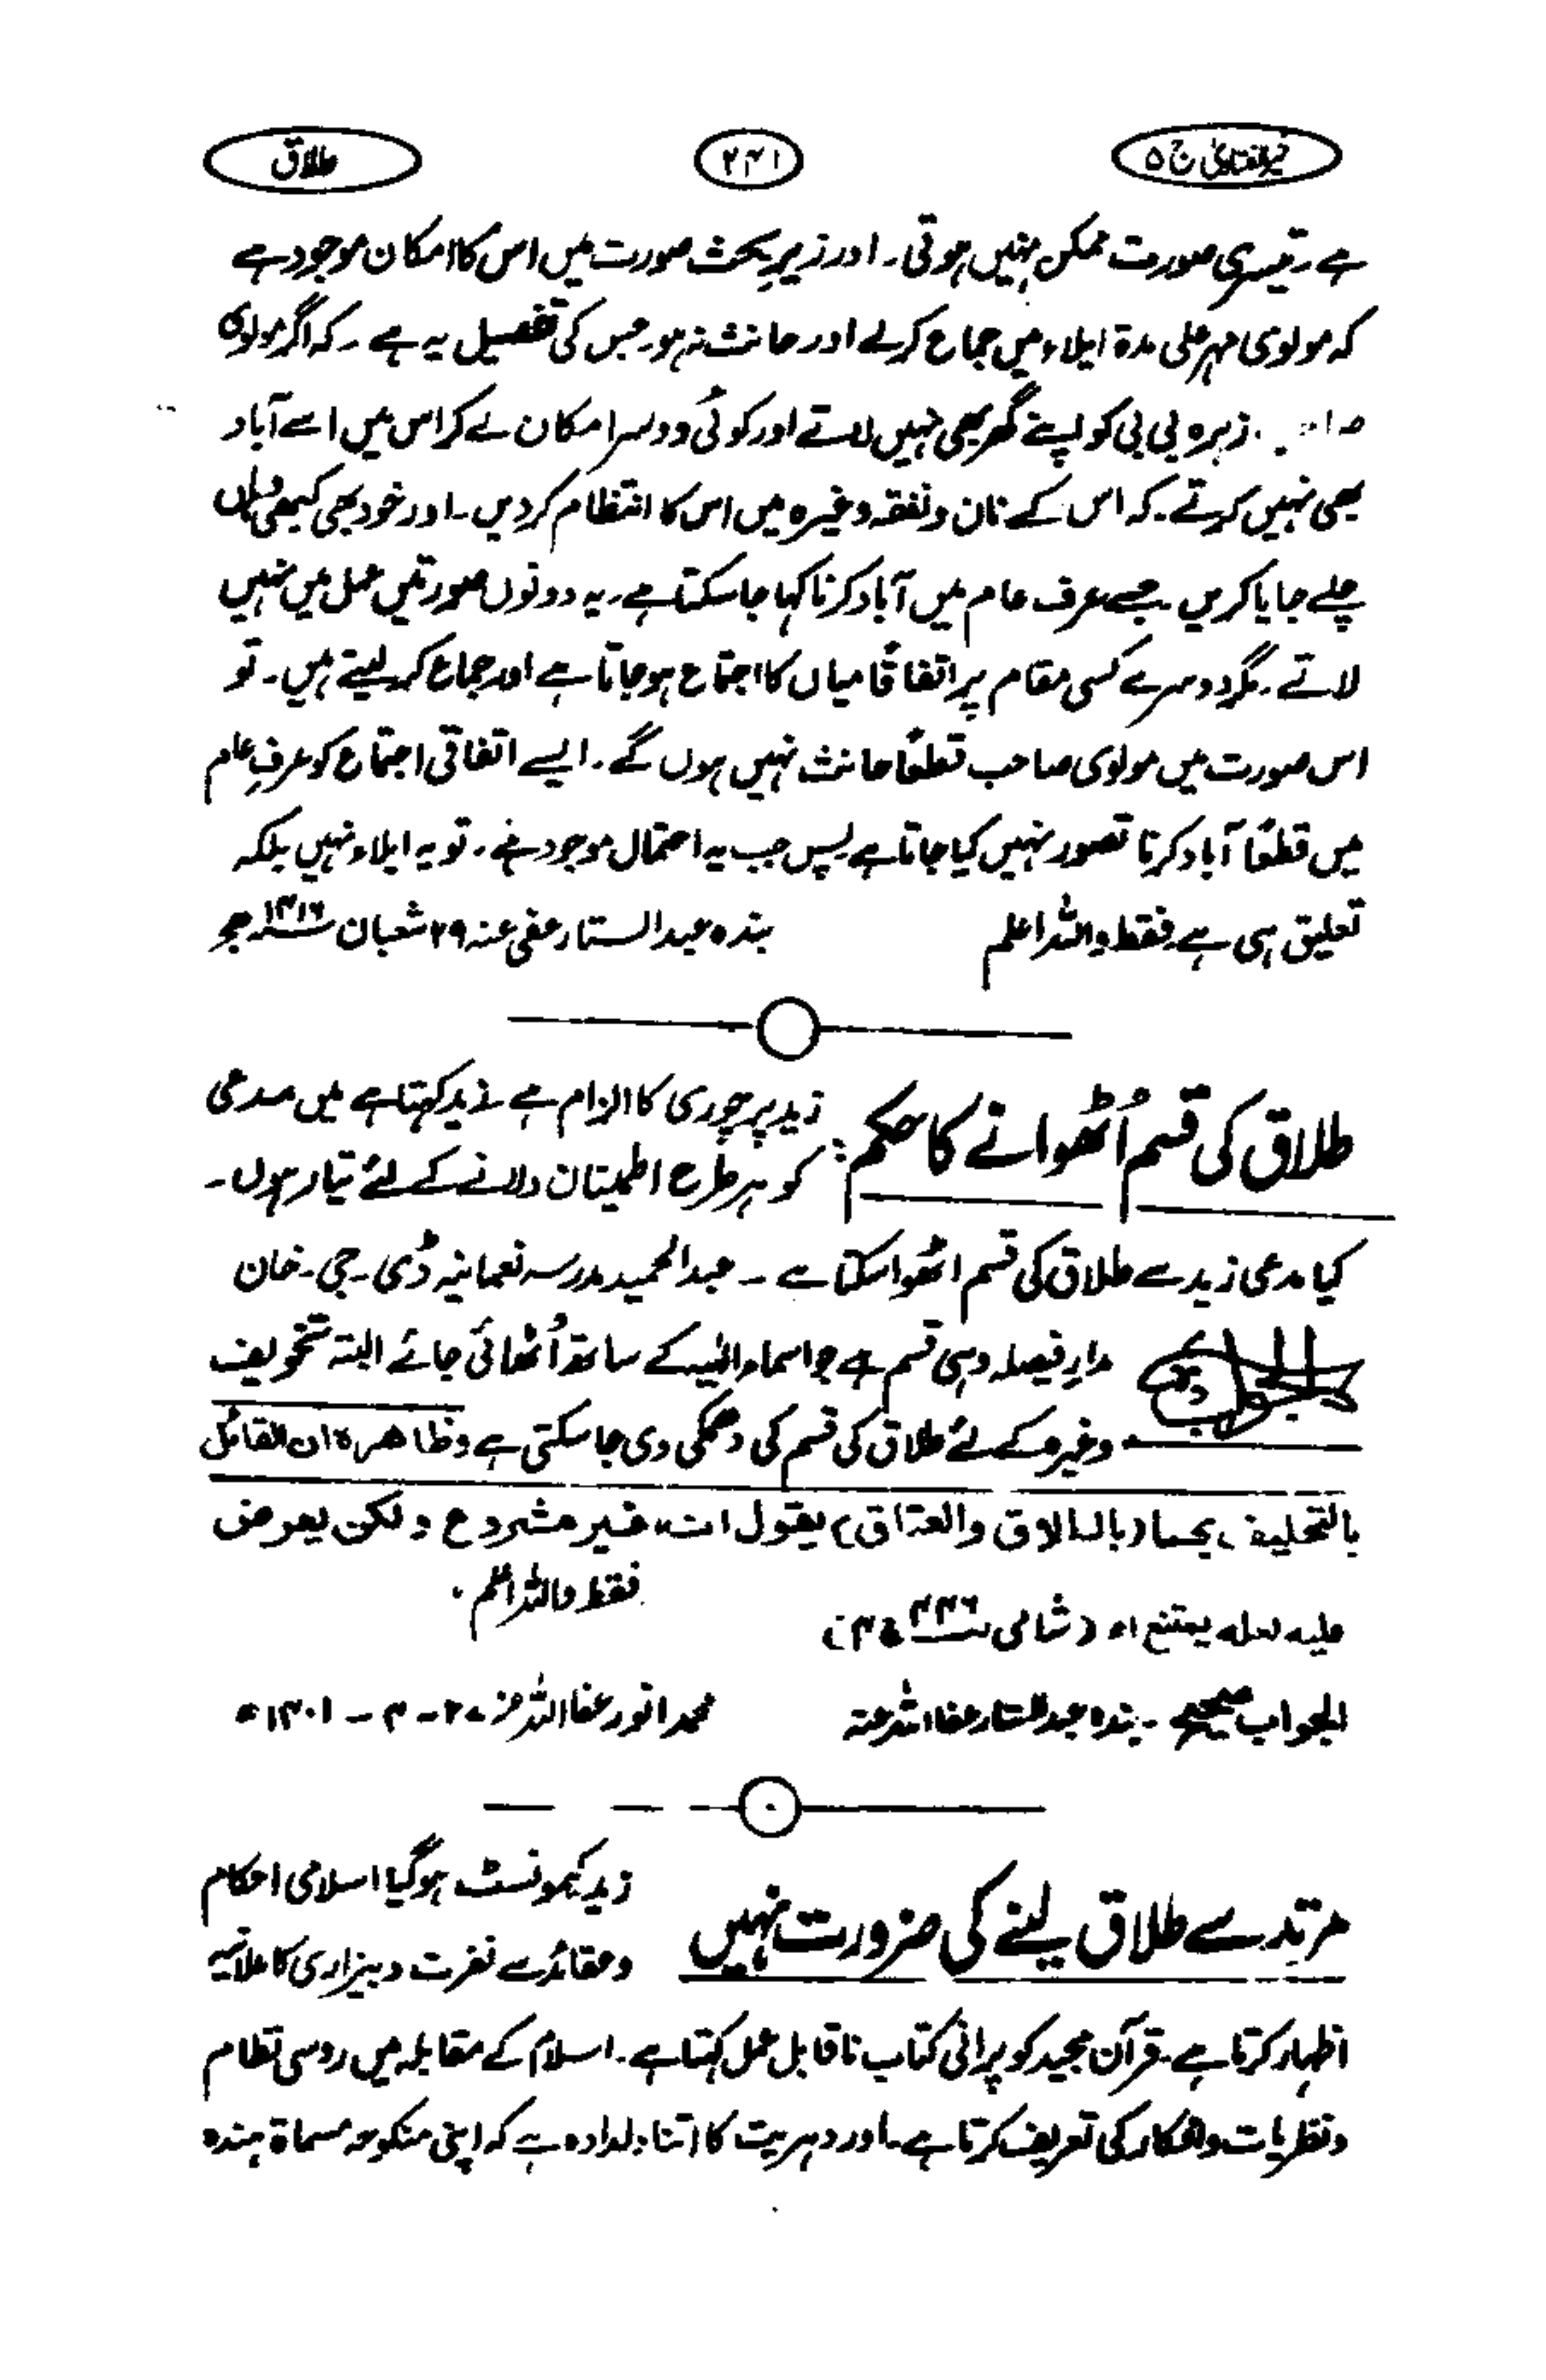 خیر الفتاویٰ ج ۵
۲۴۱
طلاق
ہے۔ تیسری صورت ممکن نہیں ہوتی۔ اور زیرِ بحث صورت میں اس کا امکان موجود ہے
کہ مولوی مہر علی مدۃ ایلاء میں جماع کرلے اور حانث نہ ہو۔ جس کی تفصیل یہ ہے۔ کہ اگر مولوی
زہرہ بی بی کو اپنے گھر بھی نہیں لاتے اور کوئی دوسرا مکان لے کر اس میں اسے آباد
بھی نہیں کرتے۔ کہ اس کے نان و نفقہ وغیرہ میں اس کا انتظام کردیں۔ اور خود بھی کبھی کبھی وہاں
چلے جایا کریں۔ جسے عرف عام میں آباد کرنا کہا جاسکتا ہے۔ یہ دونوں صورتیں عمل میں نہیں
لاتے۔ مگر دوسرے کسی مقام پر اتفاقاً میاں کا اجتماع ہوجاتا ہے اور جماع کرلیتے ہیں۔ تو
اس صورت میں مولوی صاحب قطعاً حانث نہیں ہوں گے۔ ایسے اتفاقی اجتماع کو عرفِ عام
میں قطعاً آباد کرنا تصور نہیں کیا جاتا ہے پس جب یہ احتمال موجود ہے۔ تو یہ ایلاء نہیں بلکہ
تعلیق ہی ہے۔ فقط واللہ اعلم بندہ عبدالستار عفی عنہ ۲۹ شعبان
طلاق کی قسم اُٹھوانے کا حکم: زید پر چوری کا الزام ہے زید کہتا ہے میں مدعی
کو ہر طرح اطمینان دلانے کے لئے تیار ہوں۔
کیا مدعی زید سے طلاق کی قسم اٹھوا سکتا ہے ۔ عبدالحمید مدرسہ نعمانیہ ڈی۔جی۔خان
الجواب مدارِ فیصلہ وہی قسم ہے جو اسماء الٰہیہ کے ساتھ اُٹھائی جائے البتہ تخویف
وغیرہ کے لئے طلاق کی قسم کی دھمکی دی جاسکتی ہے وظاهره ان القائل
بالتحلیف بهما (بالطلاق والعتاق) یقول انه غیر مشروع ولکن یعرض
علیه لعله یمتنع اھ (شامی ج۴) فقط واللہ اعلم۔
الجواب صحیح۔ بندہ عبدالستار عفا اللہ عنہ محمد انور عفا اللہ عنہ
مرتد سے طلاق لینے کی ضرورت نہیں زید کمیونسٹ ہوگیا اسلامی احکام
و عقائد سے نفرت و بیزاری کا علانیہ
اظہار کرتا ہے۔ قرآن مجید کو پرانی کتاب ناقابل عمل کہتا ہے۔ اسلام کے مقابلہ میں روسی نظام
و نظریات و افکار کی تعریف کرتا ہے۔ اور دہریت کا اتنا دلدادہ ہے کہ اپنی منکوحہ مسماۃ ہندہ